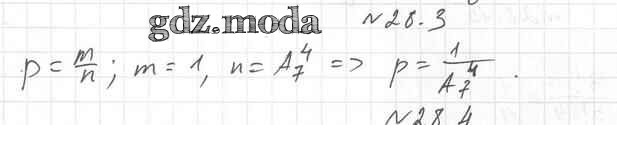 gdz.moda
№28.3
p = m/n; m = 1, n = A₇⁴ => p = 1/A₇⁴.
№28.4